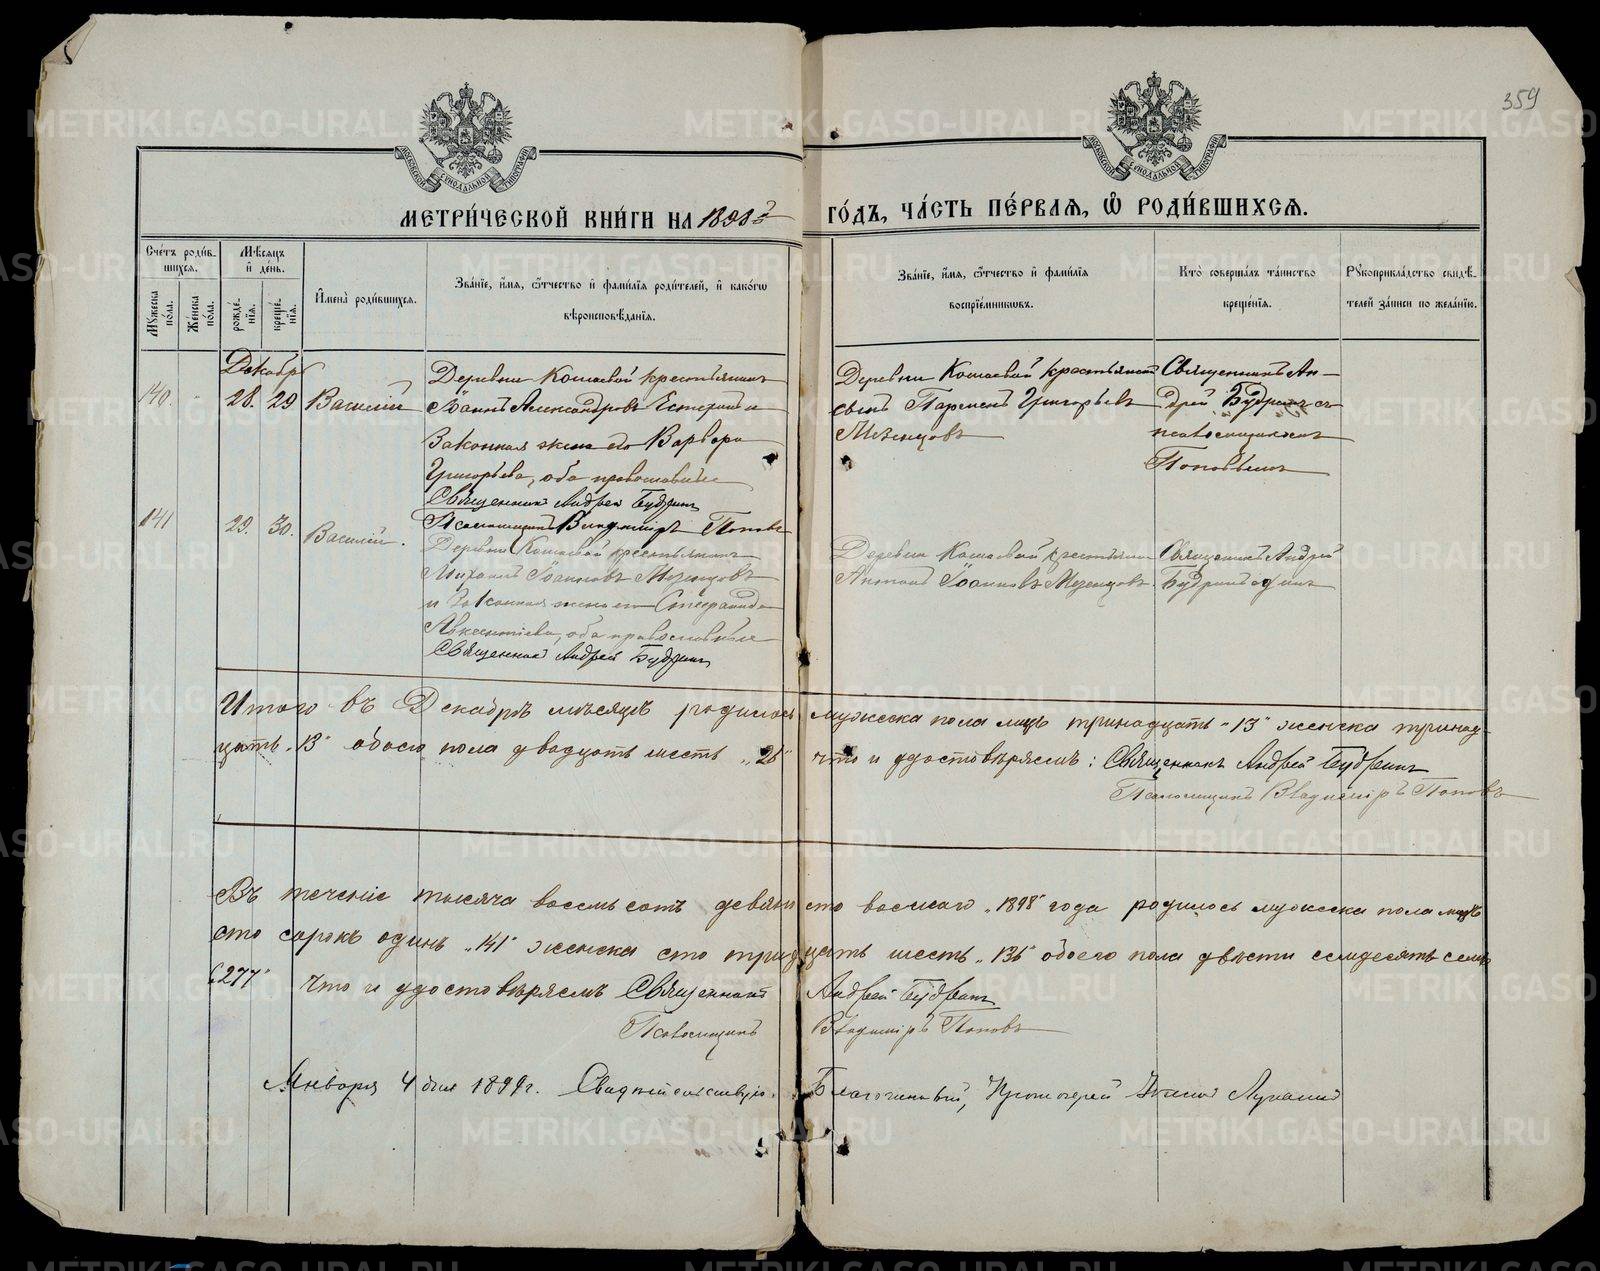 359
МОСКОВСКОЙ СѴНОДАЛЬНОЙ ТИПОГРАФІИ
МОСКОВСКОЙ СѴНОДАЛЬНОЙ ТИПОГРАФІИ
МЕТРИ́ЧЕСКОЙ КНИ́ГИ НА 1898 ГО́ДЪ, ЧА́СТЬ ПЕ́РВАѦ, Ѡ҆ РОДИ́ВШИХСѦ.
Сче́тъ роди́вшихсѧ.
Мꙋ́жеска по́ла.
Же́нска по́ла.
Мѣ́сѧцъ и҆ де́нь.
рожде́нїѧ.
креще́нїѧ.
И҆мена̀ роди́вшихсѧ.
Зва́нїе, и҆́мѧ, ѻ҆́тчество и҆ фами́лїѧ роди́телей, и҆ како́гѡ
вѣроисповѣ́данїѧ.
Зва́нїе, и҆́мѧ, ѻ҆́тчество и҆ фами́лїѧ
воспрїе́мникѡвъ.
Кто̀ соверша́лъ та́инство
креще́нїѧ.
Рꙋкоприкла́дство свидѣ́-
телей за́писи по жела́нїю.
Декабрь
140. 28. 29 Василій
Деревни Кошаевой крестьянинъ
Іоаннъ Александровъ
Законная жена его Варвара
Григорьева, оба православные
Священникъ Андрей Будринъ
Псаломщикъ Владиміръ Поповъ
Деревни Кошаевой крестьянскій
сынъ Парменъ Григорьевъ
Мезенцовъ
Священникъ Ан-
дрей Будринъ съ
псаломщикомъ
Поповымъ
141 29. 30. Василій.
Деревни Кошаевой крестьянинъ
Михаилъ Іоанновъ Мезенцовъ
и Законная жена его Стефанида
Авксентіева, оба православные
Священникъ Андрей Будринъ
Деревни Кошаевой крестьянинъ
Антонъ Іоанновъ Мезенцовъ.
Священникъ Андрей
Будринъ одинъ
Итого въ Декабрѣ мѣсяцѣ родилось мужеска пола лицъ тринадцать „13“ женска тринад-
цать „13“ обоего пола двадцать шесть „26“ что и удостовѣряемъ: Священникъ Андрей Будринъ
Псаломщикъ Владиміръ Поповъ
Въ теченіе тысяча восемьсотъ девяносто восьмаго „1898“ года родилось мужеска пола лицъ
сто сорокъ одинъ „141“ женска сто тридцать шесть „136“ обоего пола двѣсти семидесять семь
„277“ Что и удостовѣряемъ Священникъ Андрей Будринъ
Псаломщикъ Владиміръ Поповъ
Января 4 дня 1899 г. Свидѣтельствую. Благочинный, Протоіерей
METRIKI.GASO-URAL.RU